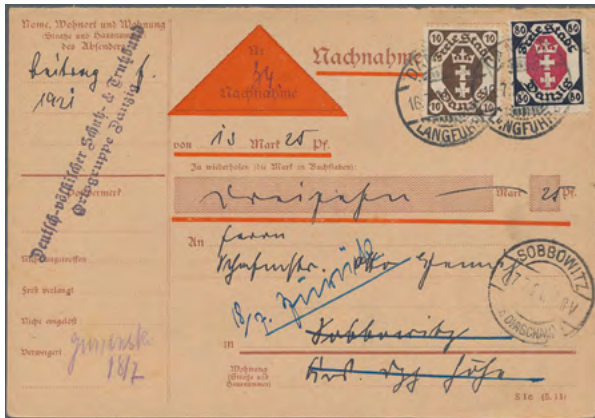 Name, Wohnort und Wohnung
(Straße und Hausnummer)
des Absenders
Beitrag f.
1921
Deutsch-völkischer Schutz- & Trutzbund
Ortsgruppe Danzig
Postvermerk
Nicht angetroffen
Frist verlangt
Nicht eingelöst
Verweigert
18/7
Nr
Nachnahme
Nachnahme
von 13 Mark 25 Pf.
Zu wiederholen (die Mark in Buchstaben):
Dreizehn Mark 25 Pf.
An
Herrn
18/7. Zurück
Sobbowitz
in
Wohnung
(Straße und
Hausnummer)
Höhe
10 Freie Stadt 10
10 Danzig 10
80 Freie Stadt 80
80 Danzig 80
LANGFUHR
LANGFUHR
SOBBOWITZ